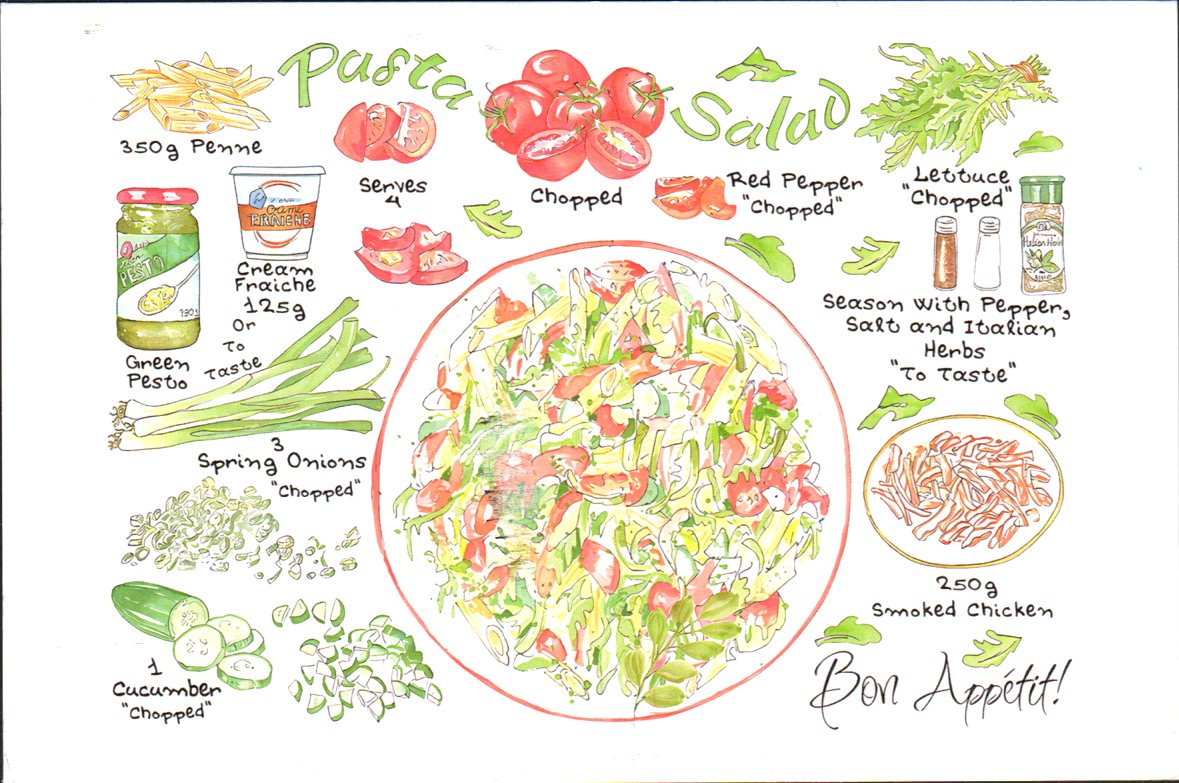 Pasta
Salad
350g Penne
Serves
4
Chopped
Red Pepper
"Chopped"
Lettuce
"Chopped"
PESTO
190g
Crème
FRAICHE
Cream
Fraiche
125g
Or
To
Taste
Green
Pesto
Italian Herbs
Season with Pepper,
Salt and Italian
Herbs
"To Taste"
3
Spring Onions
"Chopped"
250g
Smoked Chicken
1
Cucumber
"Chopped"
Bon Appétit!